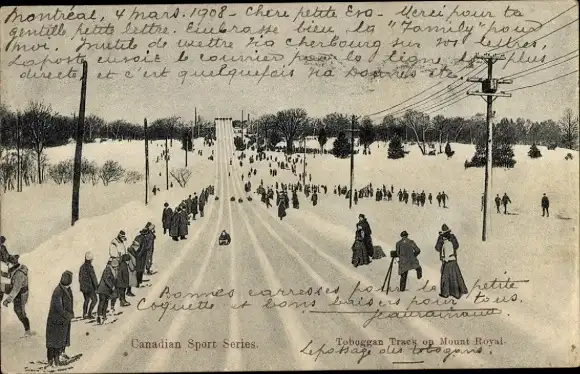 Montréal, 4 mars. 1908 - Chère petite Eva - Merci pour ta
gentille petite lettre. Embrasse bien la "Family" pour
moi. Inutile de mettre via Cherbourg sur vos lettres,
La poste envoie le courrier pour la ligne la plus
directe et c'est quelquefois via Douvres etc.
Bonnes caresses pour la petite
Coquette et bons baisers pour tous.
Canadian Sport Series.
Toboggan Track on Mount Royal.
Le passage des tobogans.